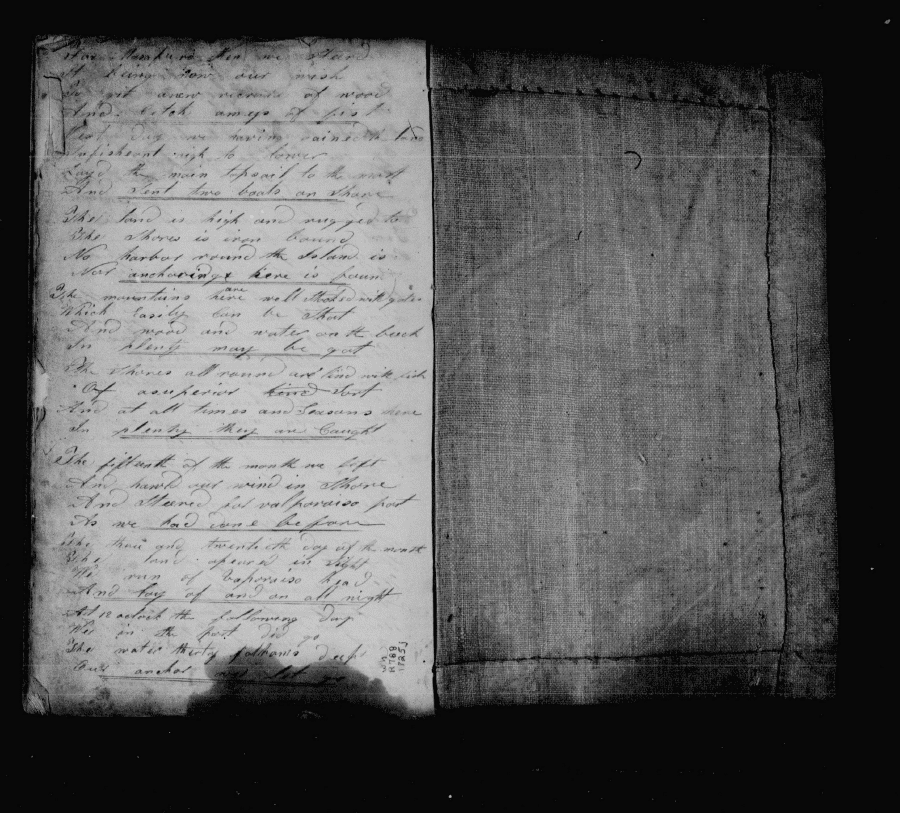 For we Steard
It being now our wish
To git anew recruit of wood
And Catch of fish
Next day we having the land
nigh to lower
Layd the main topsail to the mast
And Sent two boats on Shore
The land is high and rugged to
The Shores is iron bound
No harbor round the Island is
Nor anchoring here is foun
The mountains here are well Stocked with goats
Which Easily Can be Shot
And wood and water on the beach
In plenty may be got
The Shores all round are lind with fish
Of asuperior kind Sort
And at all times and Seasons here
In plenty they are Caught
The fifteenth of the month we left
And hawld our wind in Shore
And Steared for valparaiso port
As we had done before
The three and twentieth day of the month
The land apeared in Sight
We run of vaparaiso head
And lay of and on all night
At 12 oclock the following day
We in the port did go
The water thirty fathoms deep
Our anchor we let go